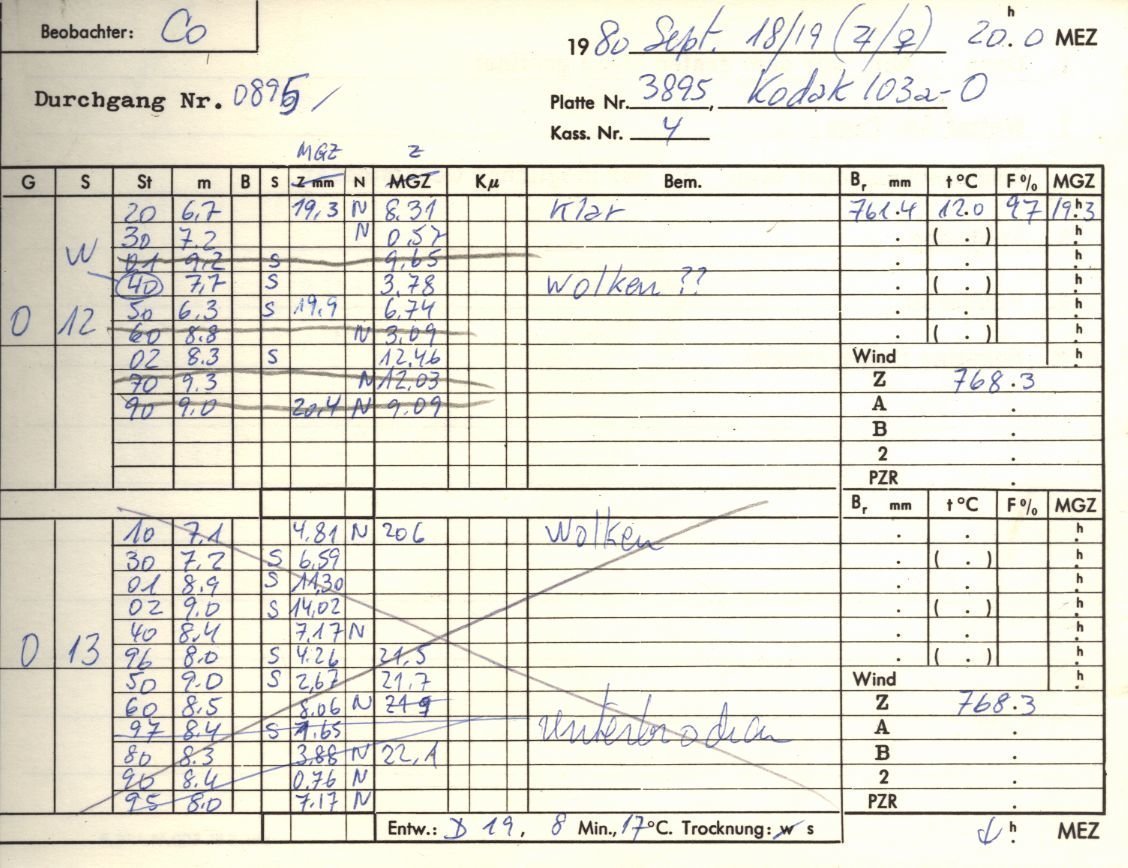 Beobachter: Co
1980 Sept. 18/19 (♃/♀) 20.h0 MEZ
Durchgang Nr. 0895 /
Platte Nr. 3895, Kodak 103a-O
Kass. Nr. 4
MGZ Z
G S St m B S Z mm N MGZ Kμ Bem. Br mm t°C F% MGZ
20 6,7 19,3 N 8.31 Klar 761.4 12.0 97 19.h3
30 7.2 N 0,57 . ( . ) h.
W 01 9,2 S 9,65 . . h.
40 7,7 S 3,78 Wolken ?? . ( . ) h.
0 12 50 6,3 S 19,9 6,74 . . h.
60 8.8 N 3,09 . ( . ) h.
02 8.3 S 12,46 Wind h.
70 9,3 N 12,03 Z 768.3
90 9,0 20,4 N 9,09 A .
B .
2 .
PZR .
Br mm t°C F% MGZ
10 7,1 4,81 N 20,6 Wolken . . h.
30 7,2 S 6,59 . ( . ) h.
01 8,9 S 11,30 . . h.
02 9,0 S 14,02 . ( . ) h.
40 8,4 7,17 N . . h.
0 13 96 8,0 S 4.26 21,5 . ( . ) h.
50 9.0 S 2,67 21,7 Wind h.
60 8.5 8,06 N 21 9 Z 768.3
97 8,4 S 1,65 unterbrochen A .
80 8.3 3,88 N 22,1 B .
90 8.4 0,76 N 2 .
95 8,0 7,17 N PZR .
Entw.: D 19, 8 Min., 17°C. Trocknung: w s h. MEZ